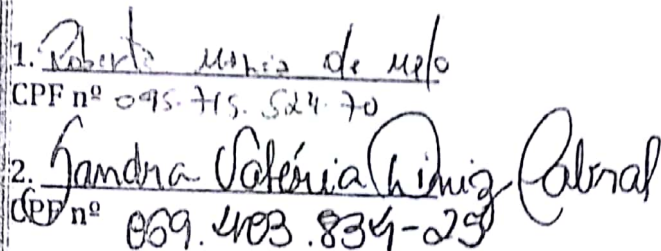 1. Roberto Maria de Melo
CPF nº 095.715.524.70
2. Sandra Valéria Diniz Cabral
CPF nº 069.403.834-25